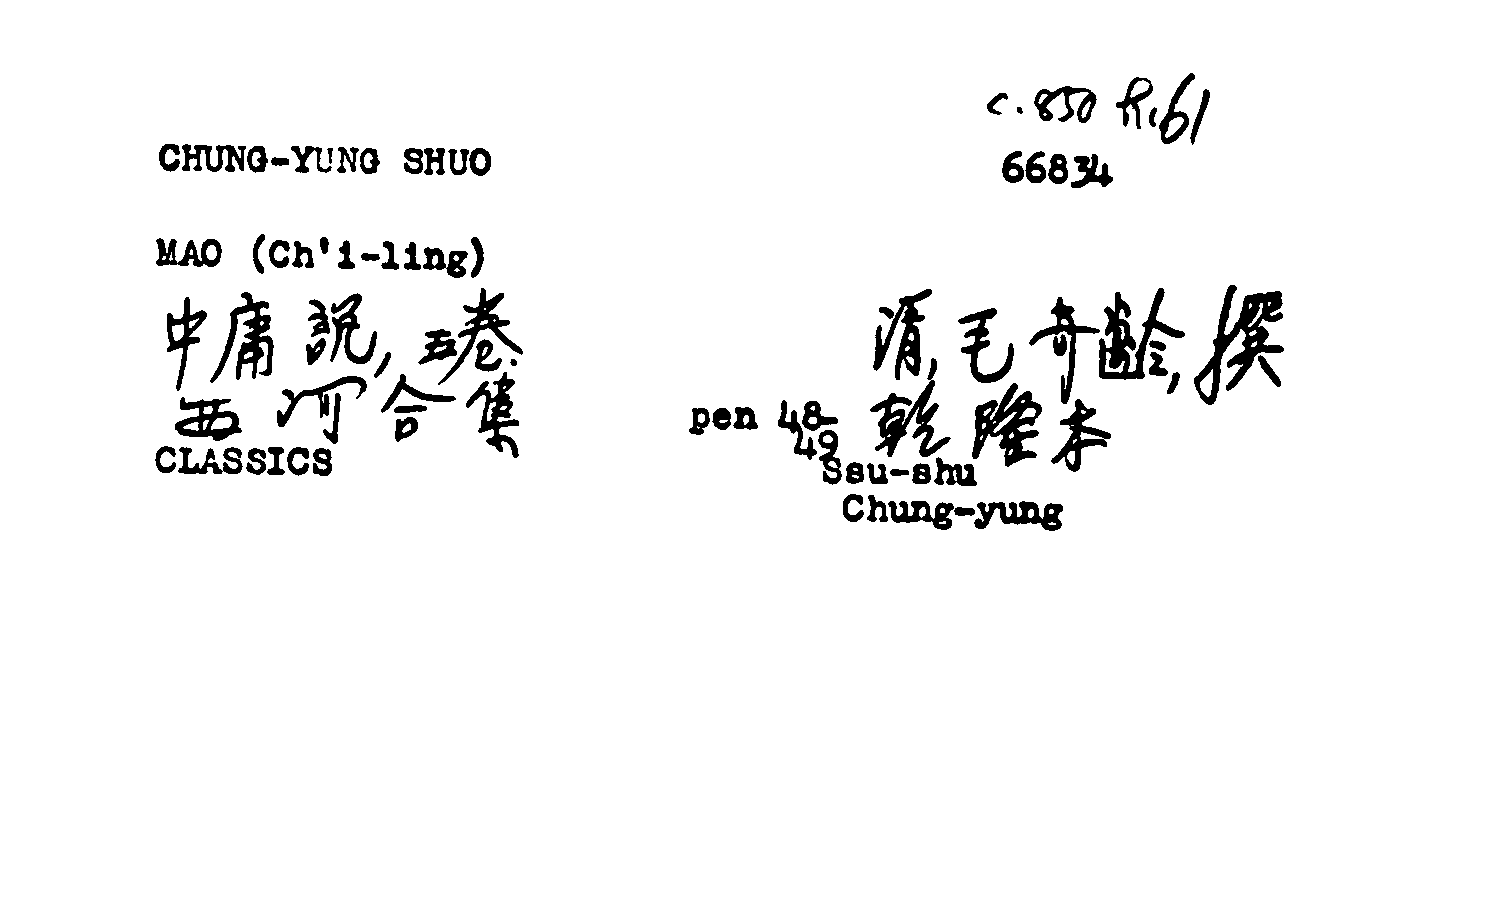 c.850 R.61
CHUNG-YUNG SHUO
66834
MAO (Ch'i-ling)
中庸說, 五卷. 清, 毛奇齡, 撰
西河合集 pen 48-49 乾隆本
CLASSICS
Ssu-shu
Chung-yung